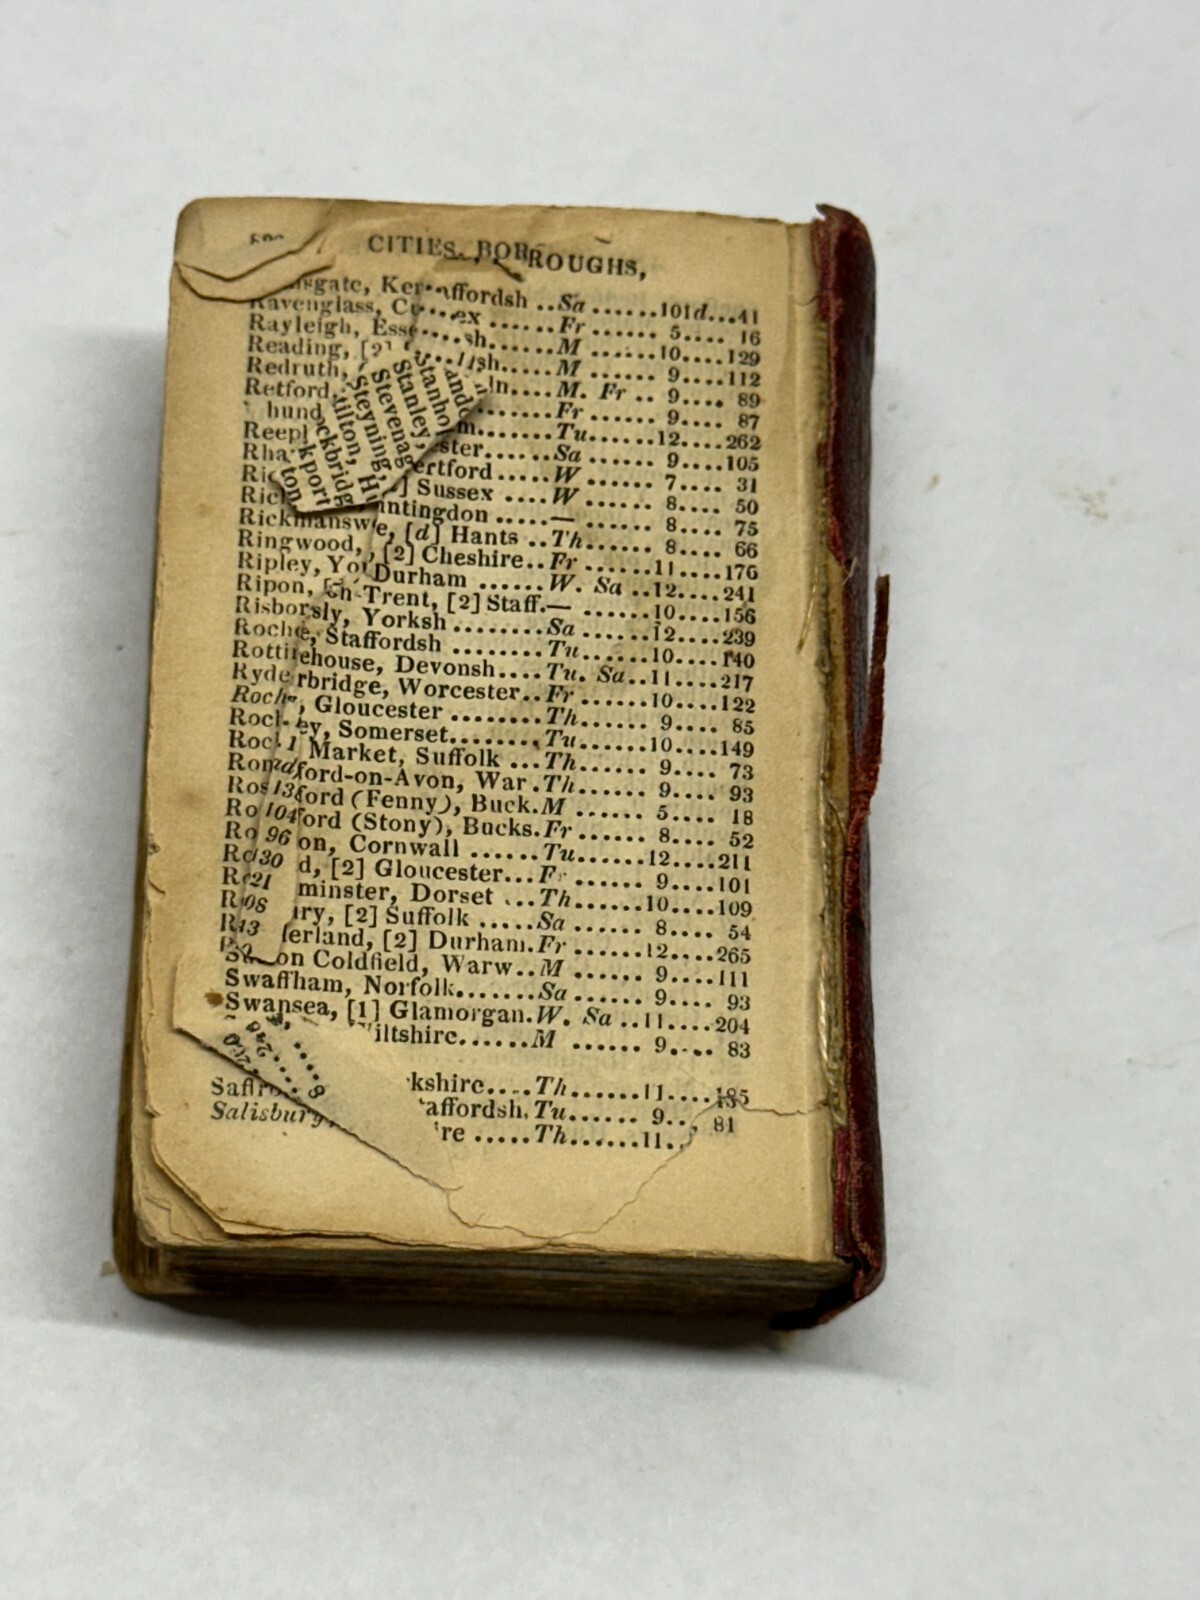 CITIES, BOROUGHS,
sgate, Ker affordsh ..Sa ......10½d...41
Ravenglass, C ...ex ......Fr ...... 5.... 16
Rayleigh, Esse....sh......M ......10....129
Reading, [2] ...sh.....M ...... 9....112
Redruth, ln....M. Fr .. 9.... 89
Retford, ......Fr ...... 9.... 87
hund m.......Tu......12....262
Reep ster......Sa ...... 9....105
Rha ertford .....W ...... 7.... 31
Ric ] Sussex ....W ...... 8.... 50
Ric ntingdon .....— ...... 8.... 75
Rickmanswe, [d] Hants ..Th...... 8.... 66
Ringwood, , [2] Cheshire..Fr ......11....176
Ripley, Yo Durham ......W. Sa ..12....241
Ripon, [ n-Trent, [2] Staff.— ......10....156
Risborsly, Yorksh ........Sa ......12....239
Roche, Staffordsh ........Tu......10....140
Rottitehouse, Devonsh....Tu. Sa..11....217
Ryderbridge, Worcester..Fr ......10....122
Roch , Gloucester ........Th ...... 9.... 85
Rocl ey, Somerset........Tu......10....149
Roc Market, Suffolk ...Th...... 9.... 73
Rom dford-on-Avon, War.Th...... 9.... 93
Ros 13 ford (Fenny), Buck.M ...... 5.... 18
Ro 104 ford (Stony), Bucks.Fr ...... 8.... 52
Ro 96 on, Cornwall ......Tu......12....211
Ro 130 d, [2] Gloucester...F ...... 9....101
R 21 minster, Dorset ...Th......10....109
R 08 ry, [2] Suffolk .....Sa ...... 8.... 54
R 13 erland, [2] Durham.Fr ......12....265
on Coldfield, Warw..M ...... 9....111
Swaffham, Norfolk.......Sa ...... 9.... 93
Swansea, [1] Glamorgan.W. Sa ..11....204
iltshire......M ...... 9.... 83
Saffro kshire....Th......11....185
Salisbury, affordsh, Tu...... 9.. 81
re .....Th......11.
Stanho
Stanley,
Stevenag
Steyning,
ilton, H
ockbridg
kport
ton